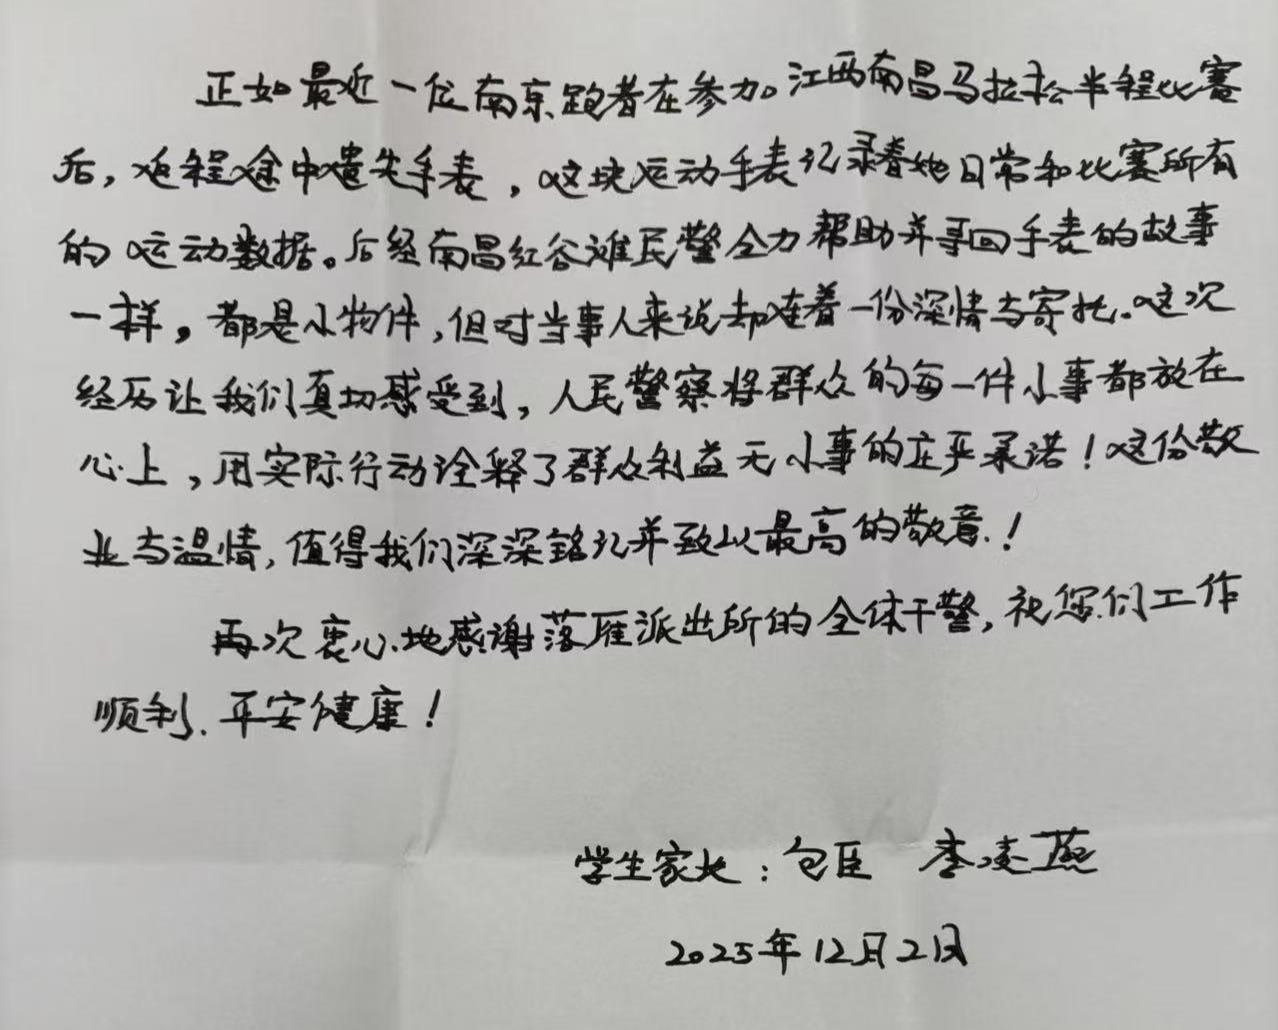 正如最近一位南京跑者在参加。江西南昌马拉松半程比赛
后，返程途中遗失手表，这块运动手表记录着她日常和比赛所有
的运动数据。后经南昌红谷滩民警全力帮助并寻回手表的故事
一样，都是小物件，但对当事人来说却连着一份深情与寄托。这次
经历让我们真切感受到，人民警察将群众的每一件小事都放在
心上，用实际行动诠释了群众利益无小事的庄严承诺！这份敬
业与温情，值得我们深深铭记并致以最高的敬意！
再次衷心地感谢落雁派出所的全体干警，祝您们工作
顺利、平安健康！
学生家长：包臣 李凌燕
2025年12月2日